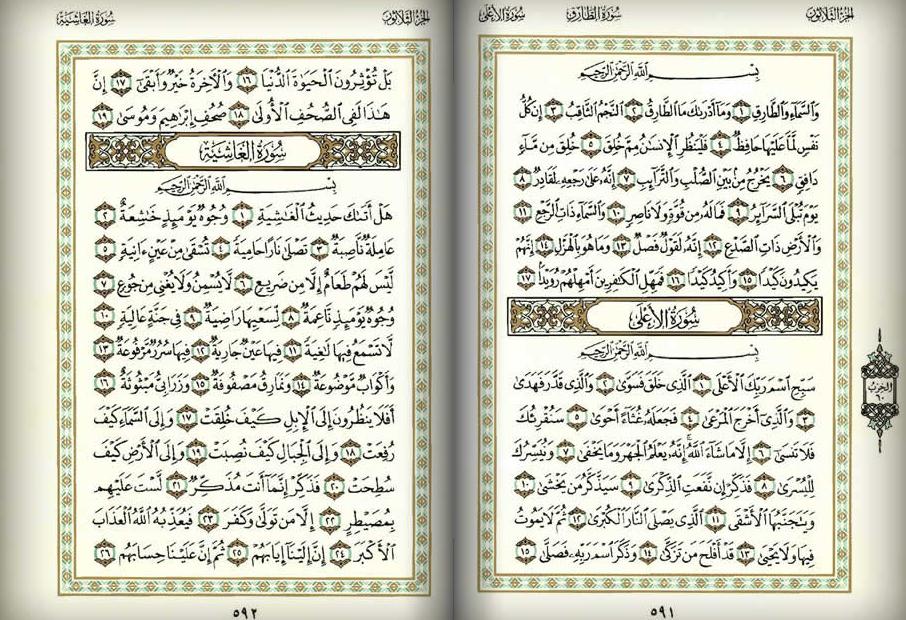 الجزء الثلاثون
سورة الطارق
سورة الأعلى
بِسْمِ ٱللَّهِ ٱلرَّحْمَٰنِ ٱلرَّحِيمِ
وَٱلسَّمَآءِ وَٱلطَّارِقِ ١ وَمَآ أَدْرَىٰكَ مَا ٱلطَّارِقُ ٢ ٱلنَّجْمُ ٱلثَّاقِبُ ٣ إِن كُلُّ
نَفْسٍ لَّمَّا عَلَيْهَا حَافِظٌ ٤ فَلْيَنظُرِ ٱلْإِنسَٰنُ مِمَّ خُلِقَ ٥ خُلِقَ مِن مَّآءٍ
دَافِقٍ ٦ يَخْرُجُ مِنۢ بَيْنِ ٱلصُّلْبِ وَٱلتَّرَآئِبِ ٧ إِنَّهُۥ عَلَىٰ رَجْعِهِۦ لَقَادِرٌ ٨
يَوْمَ تُبْلَى ٱلسَّرَآئِرُ ٩ فَمَا لَهُۥ مِن قُوَّةٍ وَلَا نَاصِرٍ ١٠ وَٱلسَّمَآءِ ذَاتِ ٱلرَّجْعِ ١١
وَٱلْأَرْضِ ذَاتِ ٱلصَّدْعِ ١٢ إِنَّهُۥ لَقَوْلٌ فَصْلٌ ١٣ وَمَا هُوَ بِٱلْهَزْلِ ١٤ إِنَّهُمْ
يَكِيدُونَ كَيْدًا ١٥ وَأَكِيدُ كَيْدًا ١٦ فَمَهِّلِ ٱلْكَٰفِرِينَ أَمْهِلْهُمْ رُوَيْدًۢا ١٧
سُورَةُ الأَعْلَىٰ
بِسْمِ ٱللَّهِ ٱلرَّحْمَٰنِ ٱلرَّحِيمِ
سَبِّحِ ٱسْمَ رَبِّكَ ٱلْأَعْلَى ١ ٱلَّذِى خَلَقَ فَسَوَّىٰ ٢ وَٱلَّذِى قَدَّرَ فَهَدَىٰ
٣ وَٱلَّذِىٓ أَخْرَجَ ٱلْمَرْعَىٰ ٤ فَجَعَلَهُۥ غُثَآءً أَحْوَىٰ ٥ سَنُقْرِئُكَ
فَلَا تَنسَىٰٓ ٦ إِلَّا مَا شَآءَ ٱللَّهُ إِنَّهُۥ يَعْلَمُ ٱلْجَهْرَ وَمَا يَخْفَىٰ ٧ وَنُيَسِّرُكَ
لِلْيُسْرَىٰ ٨ فَذَكِّرْ إِن نَّفَعَتِ ٱلذِّكْرَىٰ ٩ سَيَذَّكَّرُ مَن يَخْشَىٰ ١٠
وَيَتَجَنَّبُهَا ٱلْأَشْقَى ١١ ٱلَّذِى يَصْلَى ٱلنَّارَ ٱلْكُبْرَىٰ ١٢ ثُمَّ لَا يَمُوتُ
فِيهَا وَلَا يَحْيَىٰ ١٣ قَدْ أَفْلَحَ مَن تَزَكَّىٰ ١٤ وَذَكَرَ ٱسْمَ رَبِّهِۦ فَصَلَّىٰ ١٥
الحزب
٦٠
٥٩١
الجزء الثلاثون
سورة الغاشية
بَلْ تُؤْثِرُونَ ٱلْحَيَوٰةَ ٱلدُّنْيَا ١٦ وَٱلْءَاخِرَةُ خَيْرٌ وَأَبْقَىٰٓ ١٧ إِنَّ
هَٰذَا لَفِى ٱلصُّحُفِ ٱلْأُولَىٰ ١٨ صُحُفِ إِبْرَٰهِيمَ وَمُوسَىٰ ١٩
سُورَةُ الغَاشِيَةِ
بِسْمِ ٱللَّهِ ٱلرَّحْمَٰنِ ٱلرَّحِيمِ
هَلْ أَتَىٰكَ حَدِيثُ ٱلْغَٰشِيَةِ ١ وُجُوهٌ يَوْمَئِذٍ خَٰشِعَةٌ ٢
عَامِلَةٌ نَّاصِبَةٌ ٣ تَصْلَىٰ نَارًا حَامِيَةً ٤ تُسْقَىٰ مِنْ عَيْنٍ ءَانِيَةٍ ٥
لَّيْسَ لَهُمْ طَعَامٌ إِلَّا مِن ضَرِيعٍ ٦ لَّا يُسْمِنُ وَلَا يُغْنِى مِن جُوعٍ ٧
وُجُوهٌ يَوْمَئِذٍ نَّاعِمَةٌ ٨ لِّسَعْيِهَا رَاضِيَةٌ ٩ فِى جَنَّةٍ عَالِيَةٍ ١٠
لَّا تَسْمَعُ فِيهَا لَٰغِيَةً ١١ فِيهَا عَيْنٌ جَارِيَةٌ ١٢ فِيهَا سُرُرٌ مَّرْفُوعَةٌ ١٣
وَأَكْوَابٌ مَّوْضُوعَةٌ ١٤ وَنَمَارِقُ مَصْفُوفَةٌ ١٥ وَزَرَابِىُّ مَبْثُوثَةٌ ١٦
أَفَلَا يَنظُرُونَ إِلَى ٱلْإِبِلِ كَيْفَ خُلِقَتْ ١٧ وَإِلَى ٱلسَّمَآءِ كَيْفَ
رُفِعَتْ ١٨ وَإِلَى ٱلْجِبَالِ كَيْفَ نُصِبَتْ ١٩ وَإِلَى ٱلْأَرْضِ كَيْفَ
سُطِحَتْ ٢٠ فَذَكِّرْ إِنَّمَآ أَنتَ مُذَكِّرٌ ٢١ لَّسْتَ عَلَيْهِم
بِمُصَيْطِرٍ ٢٢ إِلَّا مَن تَوَلَّىٰ وَكَفَرَ ٢٣ فَيُعَذِّبُهُ ٱللَّهُ ٱلْعَذَابَ
ٱلْأَكْبَرَ ٢٤ إِنَّ إِلَيْنَآ إِيَابَهُمْ ٢٥ ثُمَّ إِنَّ عَلَيْنَا حِسَابَهُم ٢٦
٥٩٢